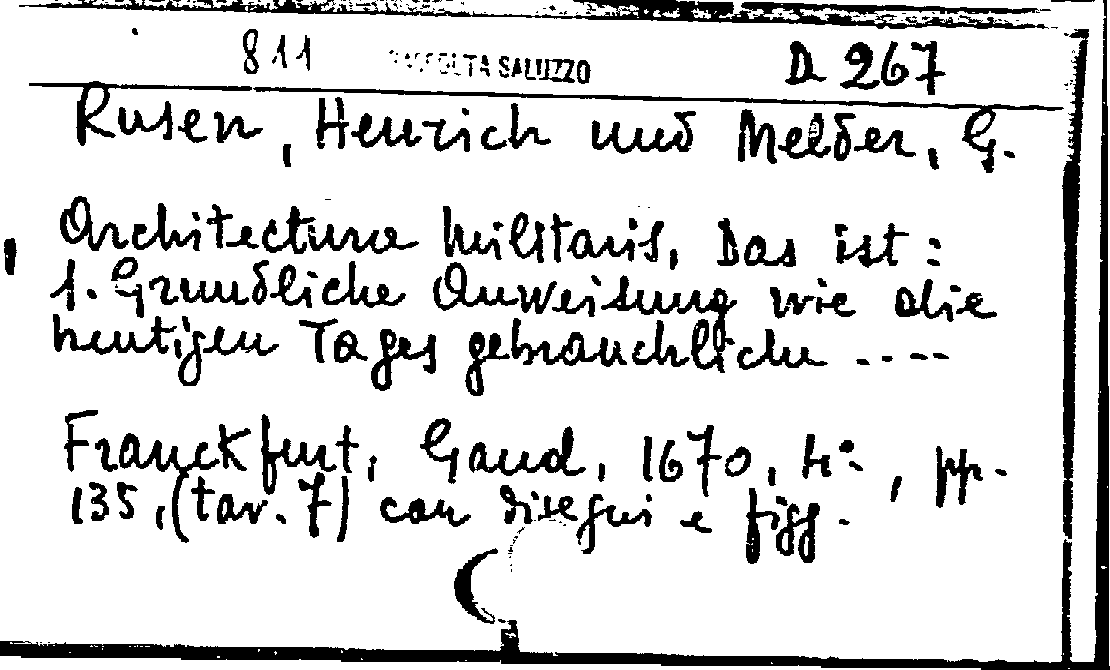 811 RACCOLTA SALUZZO D 267
Rusen, Henrich und Melder, G.
Architectura militaris, Das ist:
1. Grundliche Anweisung wie die
heutigen Tages gebrauchliche ----
Franckfurt, Gaud, 1670, 4°, pp.
135, (tav. 7) con disegni e figg.